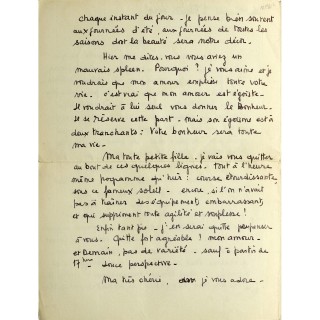 chaque instant du jour. Je pense bien souvent
aux journées d'été, aux journées de toutes les
saisons dont la beauté sera notre décor.
Hier me dites-vous vous aviez un
mauvais spleen. Pourquoi ? Je vous aime et je
voudrais que mon amour emplisse toute votre
vie. C'est vrai que mon amour est égoïste.
Il voudrait à lui seul vous donner le Bonheur.
Il se réserve cette part. Mais son égoïsme est à
deux tranchants : Votre bonheur sera toute
ma vie.
Ma toute petite fille. Je vais vous quitter
au bout de ces quelques lignes. Tout à l'heure,
même programme qu'hier : course étourdissante,
sous ce fameux soleil. encore, si l'on n'avait
pas à traîner des équipements embarrassants
et qui suppriment toute agilité et souplesse !
Enfin tant pis. J'en serai quitte pour penser
à vous. Quitte fort agréable ! mon amour.
et Demain, pas de variété. sauf à partir de
17h douce perspective.
Ma très chérie, je vous adore.